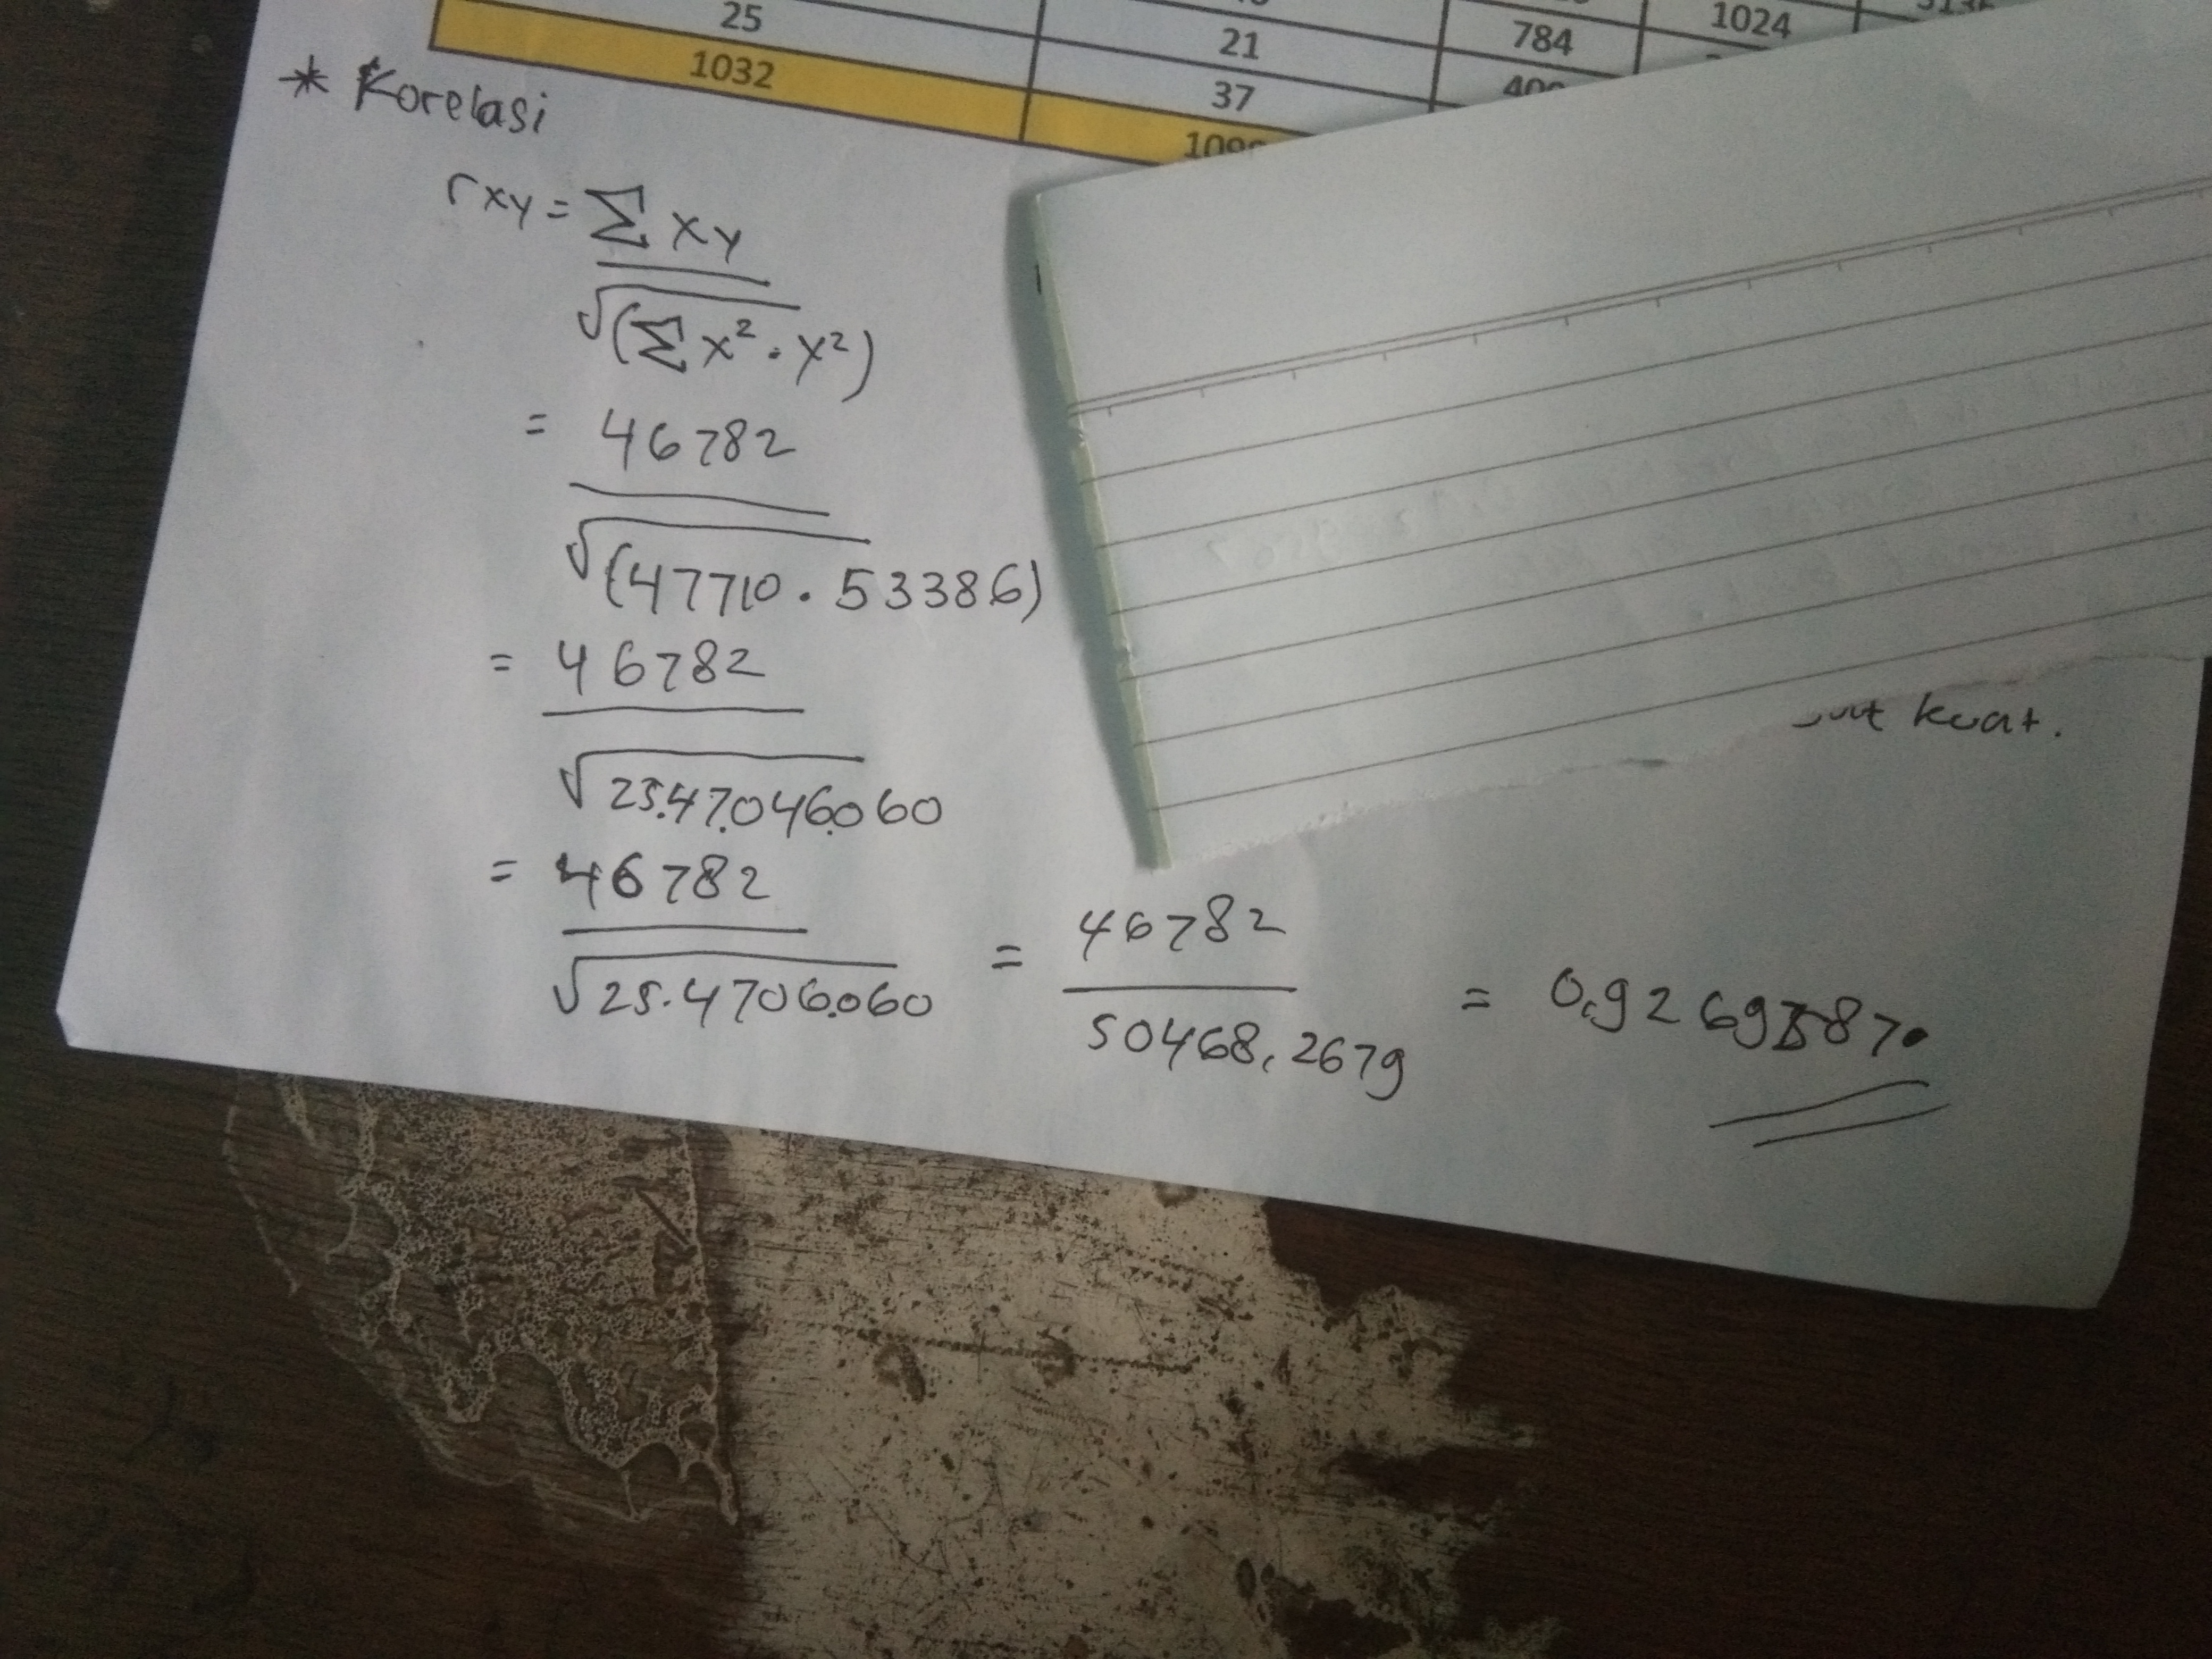 25 21 784 1024
1032 37
* Korelasi
rxy = Σ xy
√(Σ x² . y²)
= 46782
√(47710 . 53386)
= 46782
√25.47.046.060
= 46782
√25.4706.060
= 46782
50468,2679
= 0,92695587
kuat.